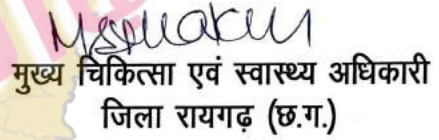 मुख्य चिकित्सा एवं स्वास्थ्य अधिकारी
जिला रायगढ़ (छ.ग.)